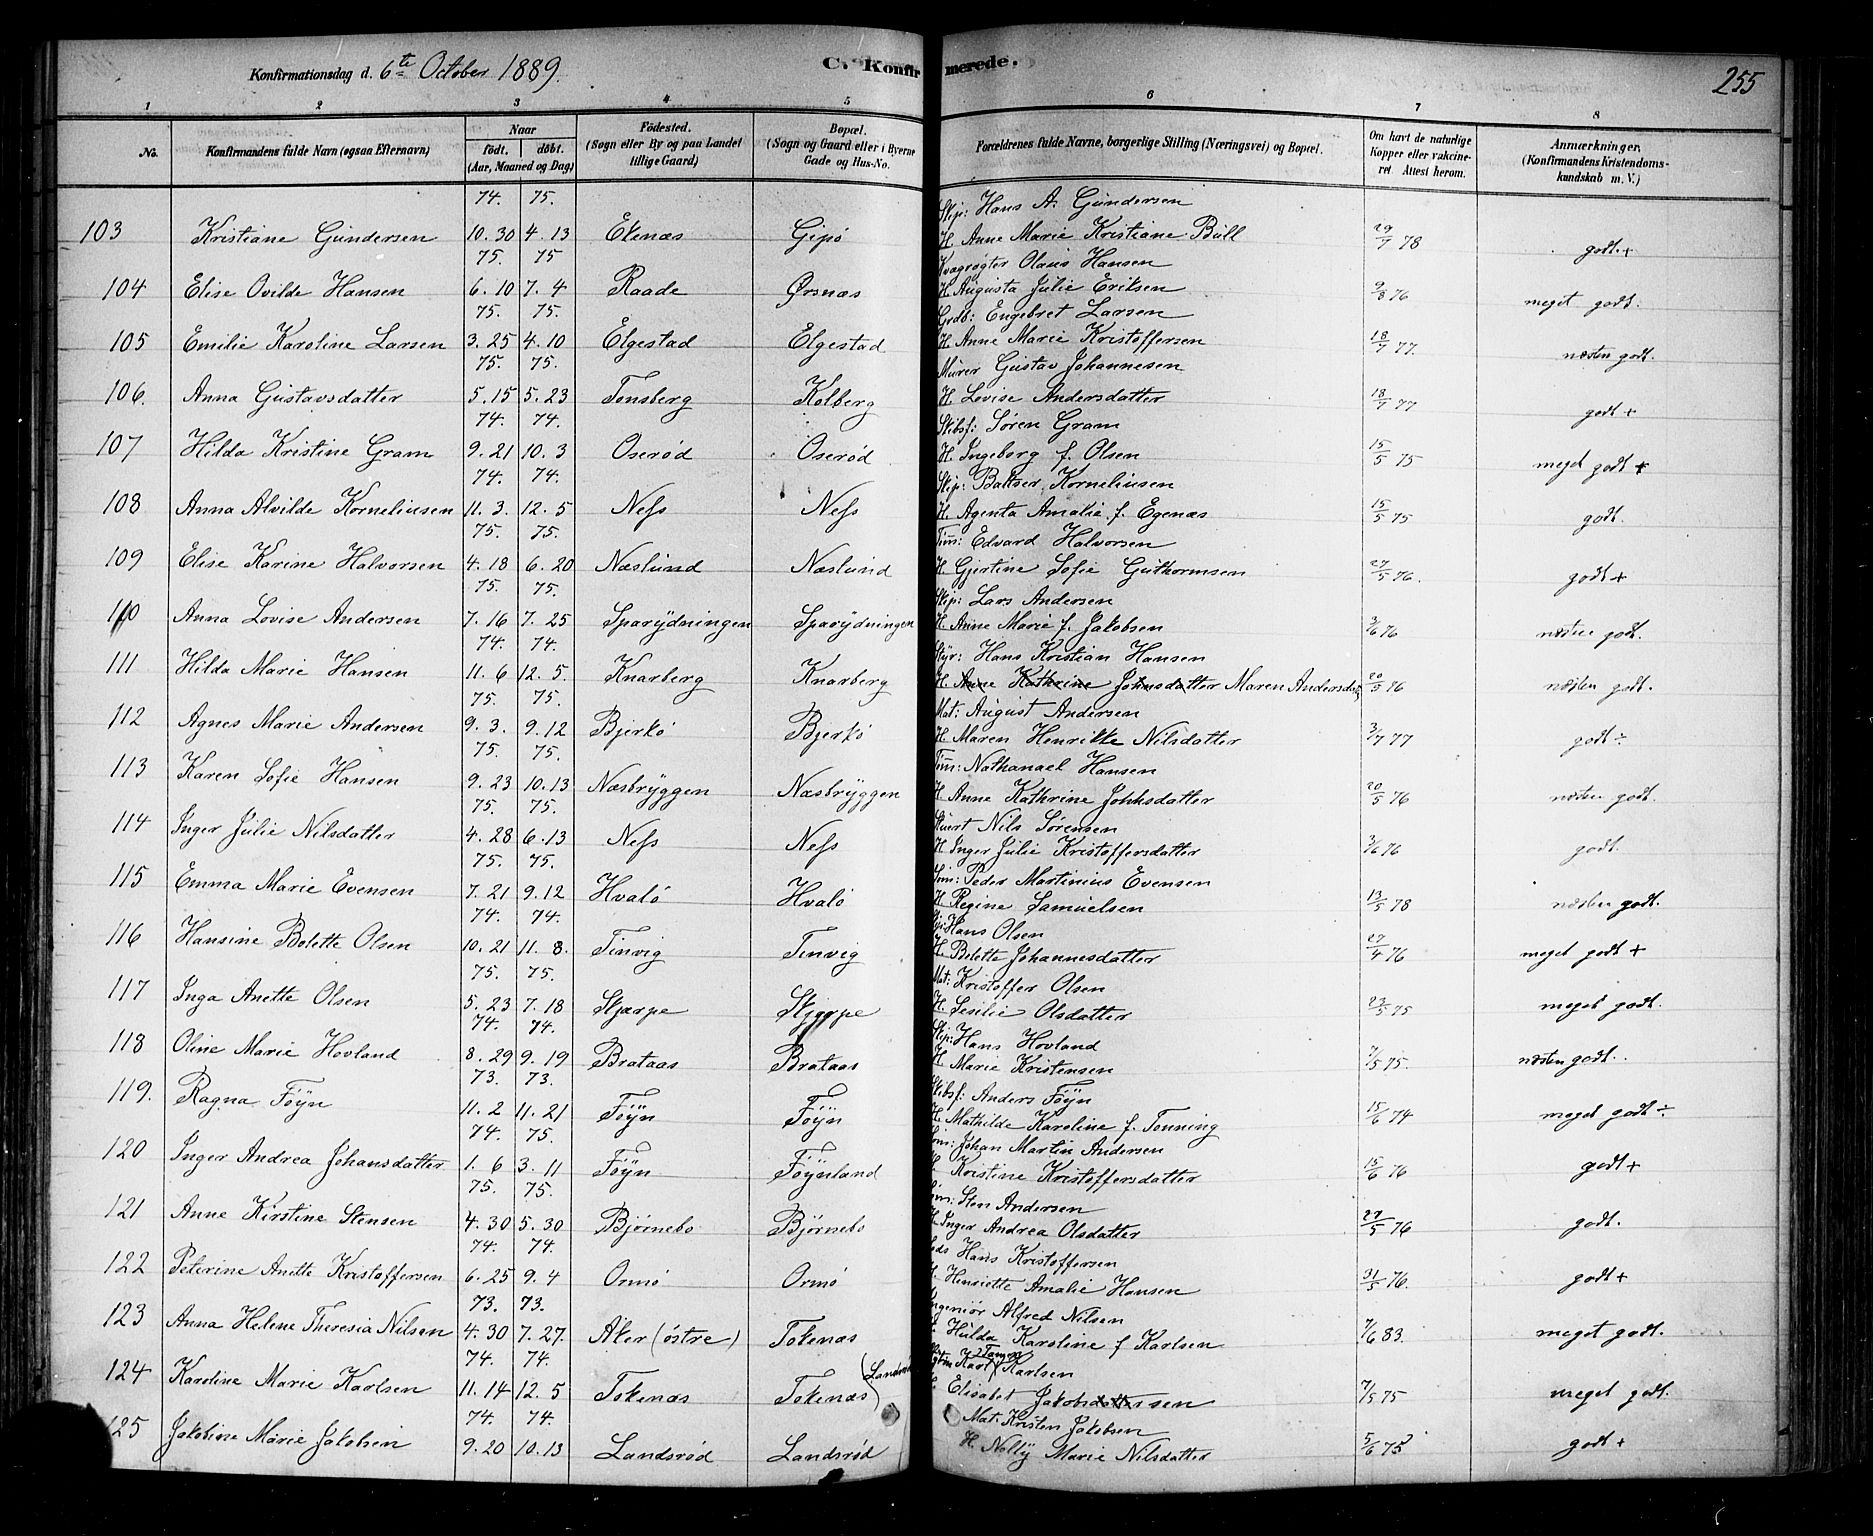 Konfirmationsdag d. 6te October 1889.
C. Konfirmerede.
255
1 2 3 4 5 6 7 8
No.
Konfirmandens fulde Navn (ogsaa Efternavn)
Naar
født. døbt.
(Aar, Maaned og Dag)
Fødested.
(Sogn eller By og paa Landet
tillige Gaard)
Bopæl.
(Sogn og Gaard eller i Byerne
Gade og Hus-No.
Forældrenes fulde Navne, borgerlige Stilling (Næringsvei) og Bopæl.
Om havt de naturlige
Kopper eller vakcine-
ret Attest herom.
Anmærkninger.
(Konfirmandens Kristendoms-
kundskab m. V.)
74. 75. Skip: Hans A. Gundersen
103 Kristiane Gundersen 10. 30 4. 13 Ekenæs Gipø H. Anne Marie Kristiane Bull 29/7 78 godt +
75. 75 Kvægrøgter Olaus Hansen
104 Elise Ovilde Hansen 6. 10 7. 4 Raade Ørsnæs H. Augusta Julie Eriksen 9/8 76 meget godt.
75. 75. Grdb: Engebret Larsen
105 Emilie Karoline Larsen 3. 25 4. 10 Elgestad Elgestad H. Anne Marie Kristoffersen 18/7 77. næsten godt.
75. 75. Murer Gustav Johannesen
106. Anna Gustavsdatter 5. 15 5. 23 Tønsberg Kolberg H. Lovise Andersdatter 18/7 77 godt +
74. 74. Skibsf: Søren Gram
107 Hilda Kristine Gram 9. 21 10. 3 Oserød Oserød H. Ingeborg f. Olsen 15/5 75 meget godt +
74. 74. Skip: Baltser Korneliusen
108 Anna Alvilde Korneliusen 11. 3. 12. 5 Ness Ness H. Agenta Amalie f. Egenæs 15/5 75 godt.
75. 75. Tøm: Edvard Halvorsen
109 Elise Karine Halvorsen 4. 18 6. 20 Næslund Næslund H. Gjertine Sofie Guthormsen 27/5 76. godt +
75. 75. Skip: Lars Andersen
110 Anna Lovise Andersen 7. 16 7. 25 Sparydningen Sparydningen H. Anne Marie f. Jakobsen 3/6 76 næsten godt.
74. 74. Styr: Hans Kristian Hansen
111 Hilda Marie Hansen 11. 6 12. 5. Knarberg Knarberg H. Anne Kathrine Johnsdatter Maren Andersd 20/5 76 næsten godt.
75. 75. Mat: August Andersen
112 Agnes Marie Andersen 9. 3. 9. 12 Bjerkø Bjerkø H. Maren Henrikke Nilsdatter 3/7 77 godt ÷
75. 75. Tøm: Nathanael Hansen
113 Karen Sofie Hansen 9. 23 10. 13 Næsbryggen Næsbryggen H. Anne Kathrine Johnsdatter 20/5 76 næsten godt.
75. 75. Stuert Nils Sørensen
114 Inger Julie Nilsdatter 4. 28 6. 13 Ness Ness H. Inger Julie Kristoffersdatter 3/6 76 godt.
75. 75. Tøm: Peder Martinius Evensen
115 Emma Marie Evensen 7. 21 9. 12 Hvalø Hvalø H. Regine Samuelsen 13/5 78 næsten godt.
74. 74. Hans Olsen
116 Hansine Bolette Olsen 10. 21 11. 8. Tinvig Tinvig H. Bolette Johannesdatter 27/4 76 meget godt +
75. 75. Mat: Kristoffer Olsen
117 Inga Anette Olsen 5. 23 7. 18 Skjærpe Skjerpe H. Sesilie Olsdatter 23/5 75 meget godt.
74. 74. Skip: Hans Hovland
118 Oline Marie Hovland 8. 29 9. 19 Brataas Brataas H. Marie Kristensen 7/5 75. næsten godt.
73. 73. Skibsf: Anders Føyn
119. Ragna Føyn 11. 2 11. 21 Føyn Føyn H. Mathilde Karoline f. Tønning 15/6 74 meget godt ÷
74. 75. Tøm: Johan Martin Andersen
120 Inger Andrea Johansdatter 1. 6 3. 11 Føyn Føynland H. Kristine Kristoffersdatter 15/6 76 godt +
75. 75. Tøm: Sten Andersen
121 Anne Kirstine Stensen 4. 30 5. 30 Bjørnebo Bjørnebo H. Inger Andrea Olsdatter 27/5 76 godt.
74. 74. Hans Kristoffersen
122 Peterine Anette Kristoffersen 6. 25 9. 4 Ormø Ormø H. Henriette Amalie Hansen 31/5 76. godt +
73. 73. Ingeniør Alfred Nilsen
123 Anna Helene Theresia Nilsen 4. 30 7. 27. Aker (østre) Tokenæs H. Hulda Karoline f Karlsen 7/6 83. meget godt.
74. 74. Karl Karlsen
124 Karoline Marie Karlsen 11. 14 12. 5 Tokenæs Tokenæs H. Elisabet Jakobsdattersen 7/5 75 meget godt.
74. 74. Mat: Kristen Jakobsen
125 Jakobine Marie Jakobsen 9. 20 10. 13 Landsrød Landsrød H. Nelly Marie Nilsdatter 5/6 75 godt +